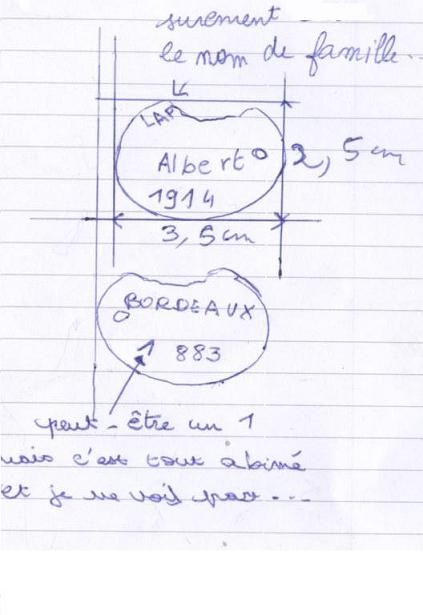 surement
le nom de famille...
LAP
Albert
1914
2,5cm
3,5cm
BORDEAUX
1 883
peut-être un 1
mais c'est tout abimé
et je ne vois pas...